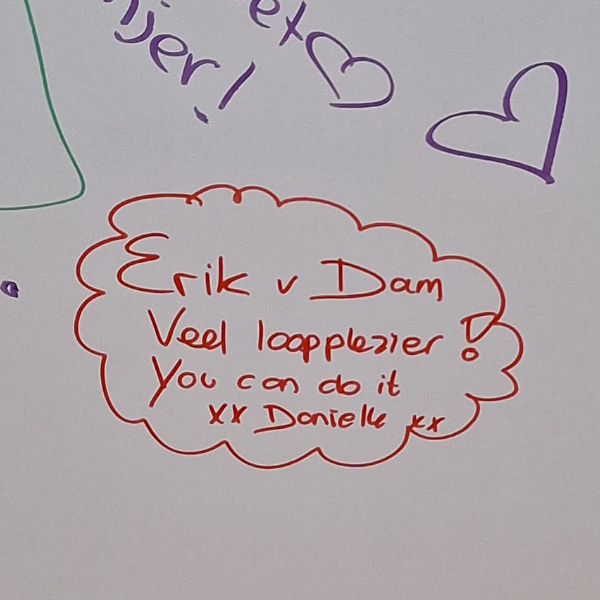 Erik v Dam
Veel loopplezier!
You can do it
xx Danielle xx